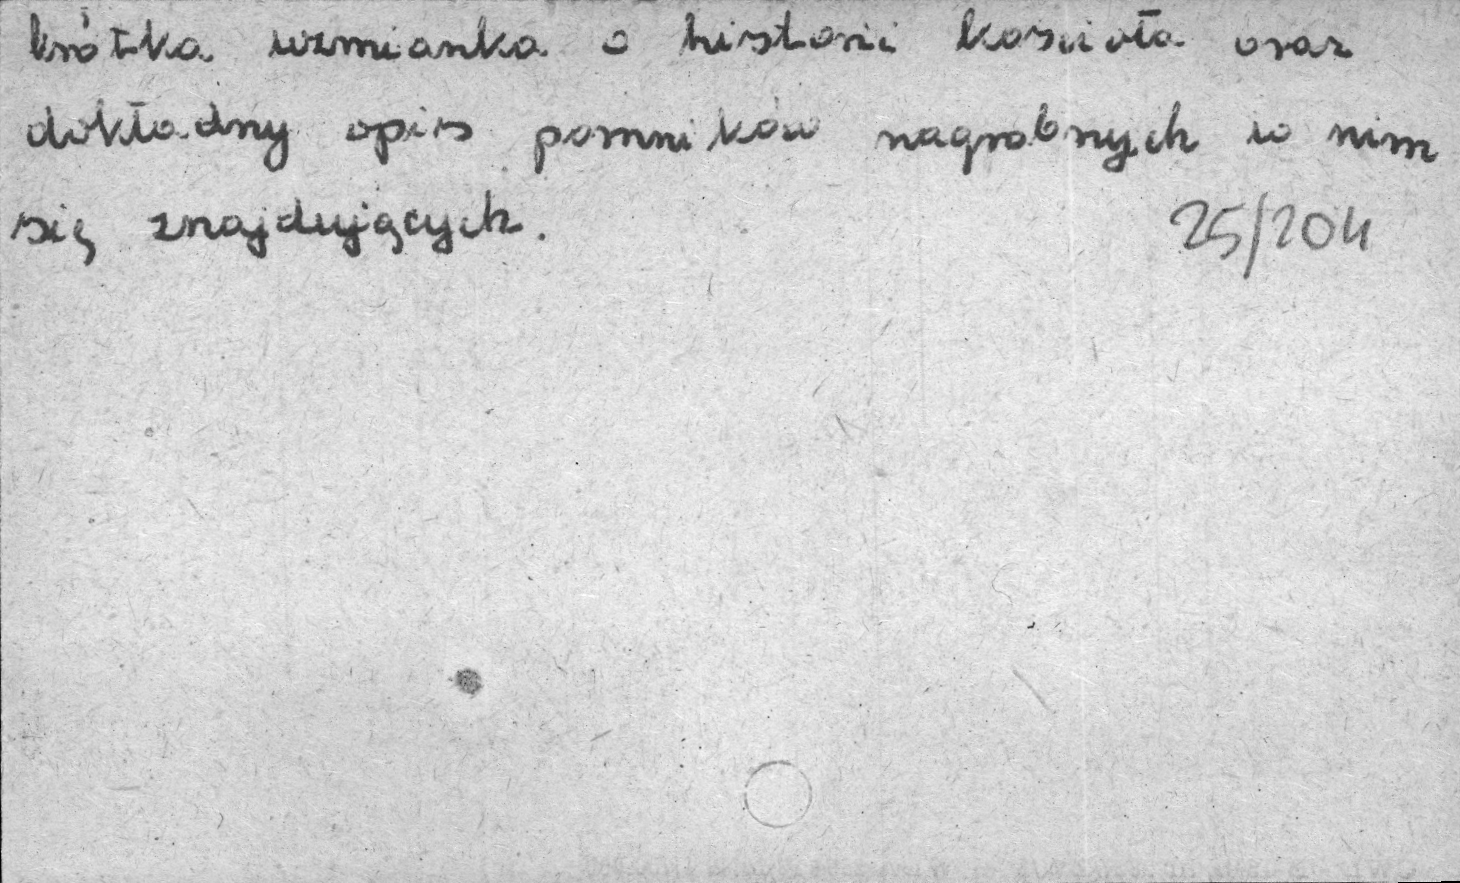 krótka wzmianka o historii kościoła oraz
dokładny opis pomników nagrobnych w nim
się znajdujących. 25/204